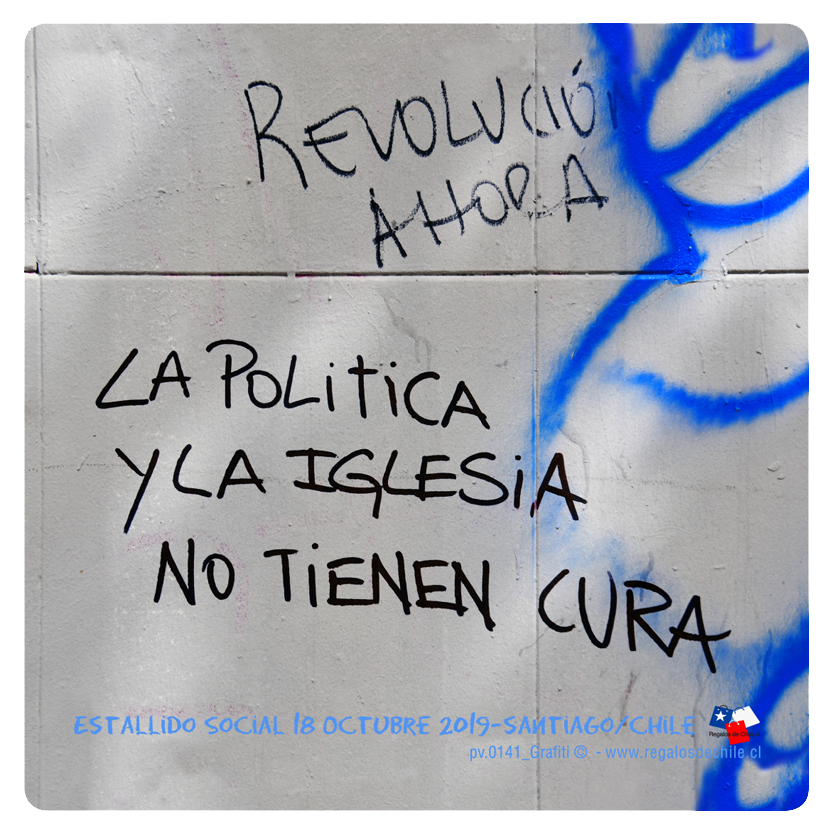 REVOLUCIÓN
AHORA
LA POLITICA
Y LA IGLESIA
NO TIENEN CURA
ESTALLIDO SOCIAL 18 OCTUBRE 2019-SANTIAGO/CHILE
Regalos de Chile
pv.0141_Grafiti © - www.regalosdechile.cl